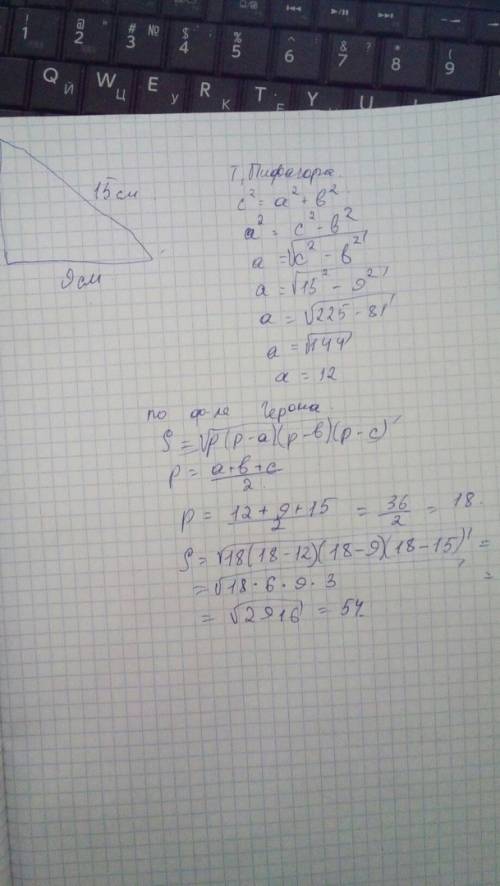 ! 1
@ 2 "
# 3 №
$ 4 ;
% 5
^ 6 :
& 7 ?
* 8
( 9
Q Й
W Ц
E У
R К
T Е
Y
U
15см
9см
Т. Пифагора.
c² = a² + в²
a² = c² - в²
a = √c² - в²
a = √15² - 9²
a = √225 - 81
a = √144
a = 12
по ф-ле Герона.
S = √p(p-a)(p-в)(p-c)
p = a+в+c / 2
p = 12+9+15 / 2 = 36 / 2 = 18.
S = √18(18-12)(18-9)(18-15) =
= √18·6·9·3 =
= √2916 = 54.